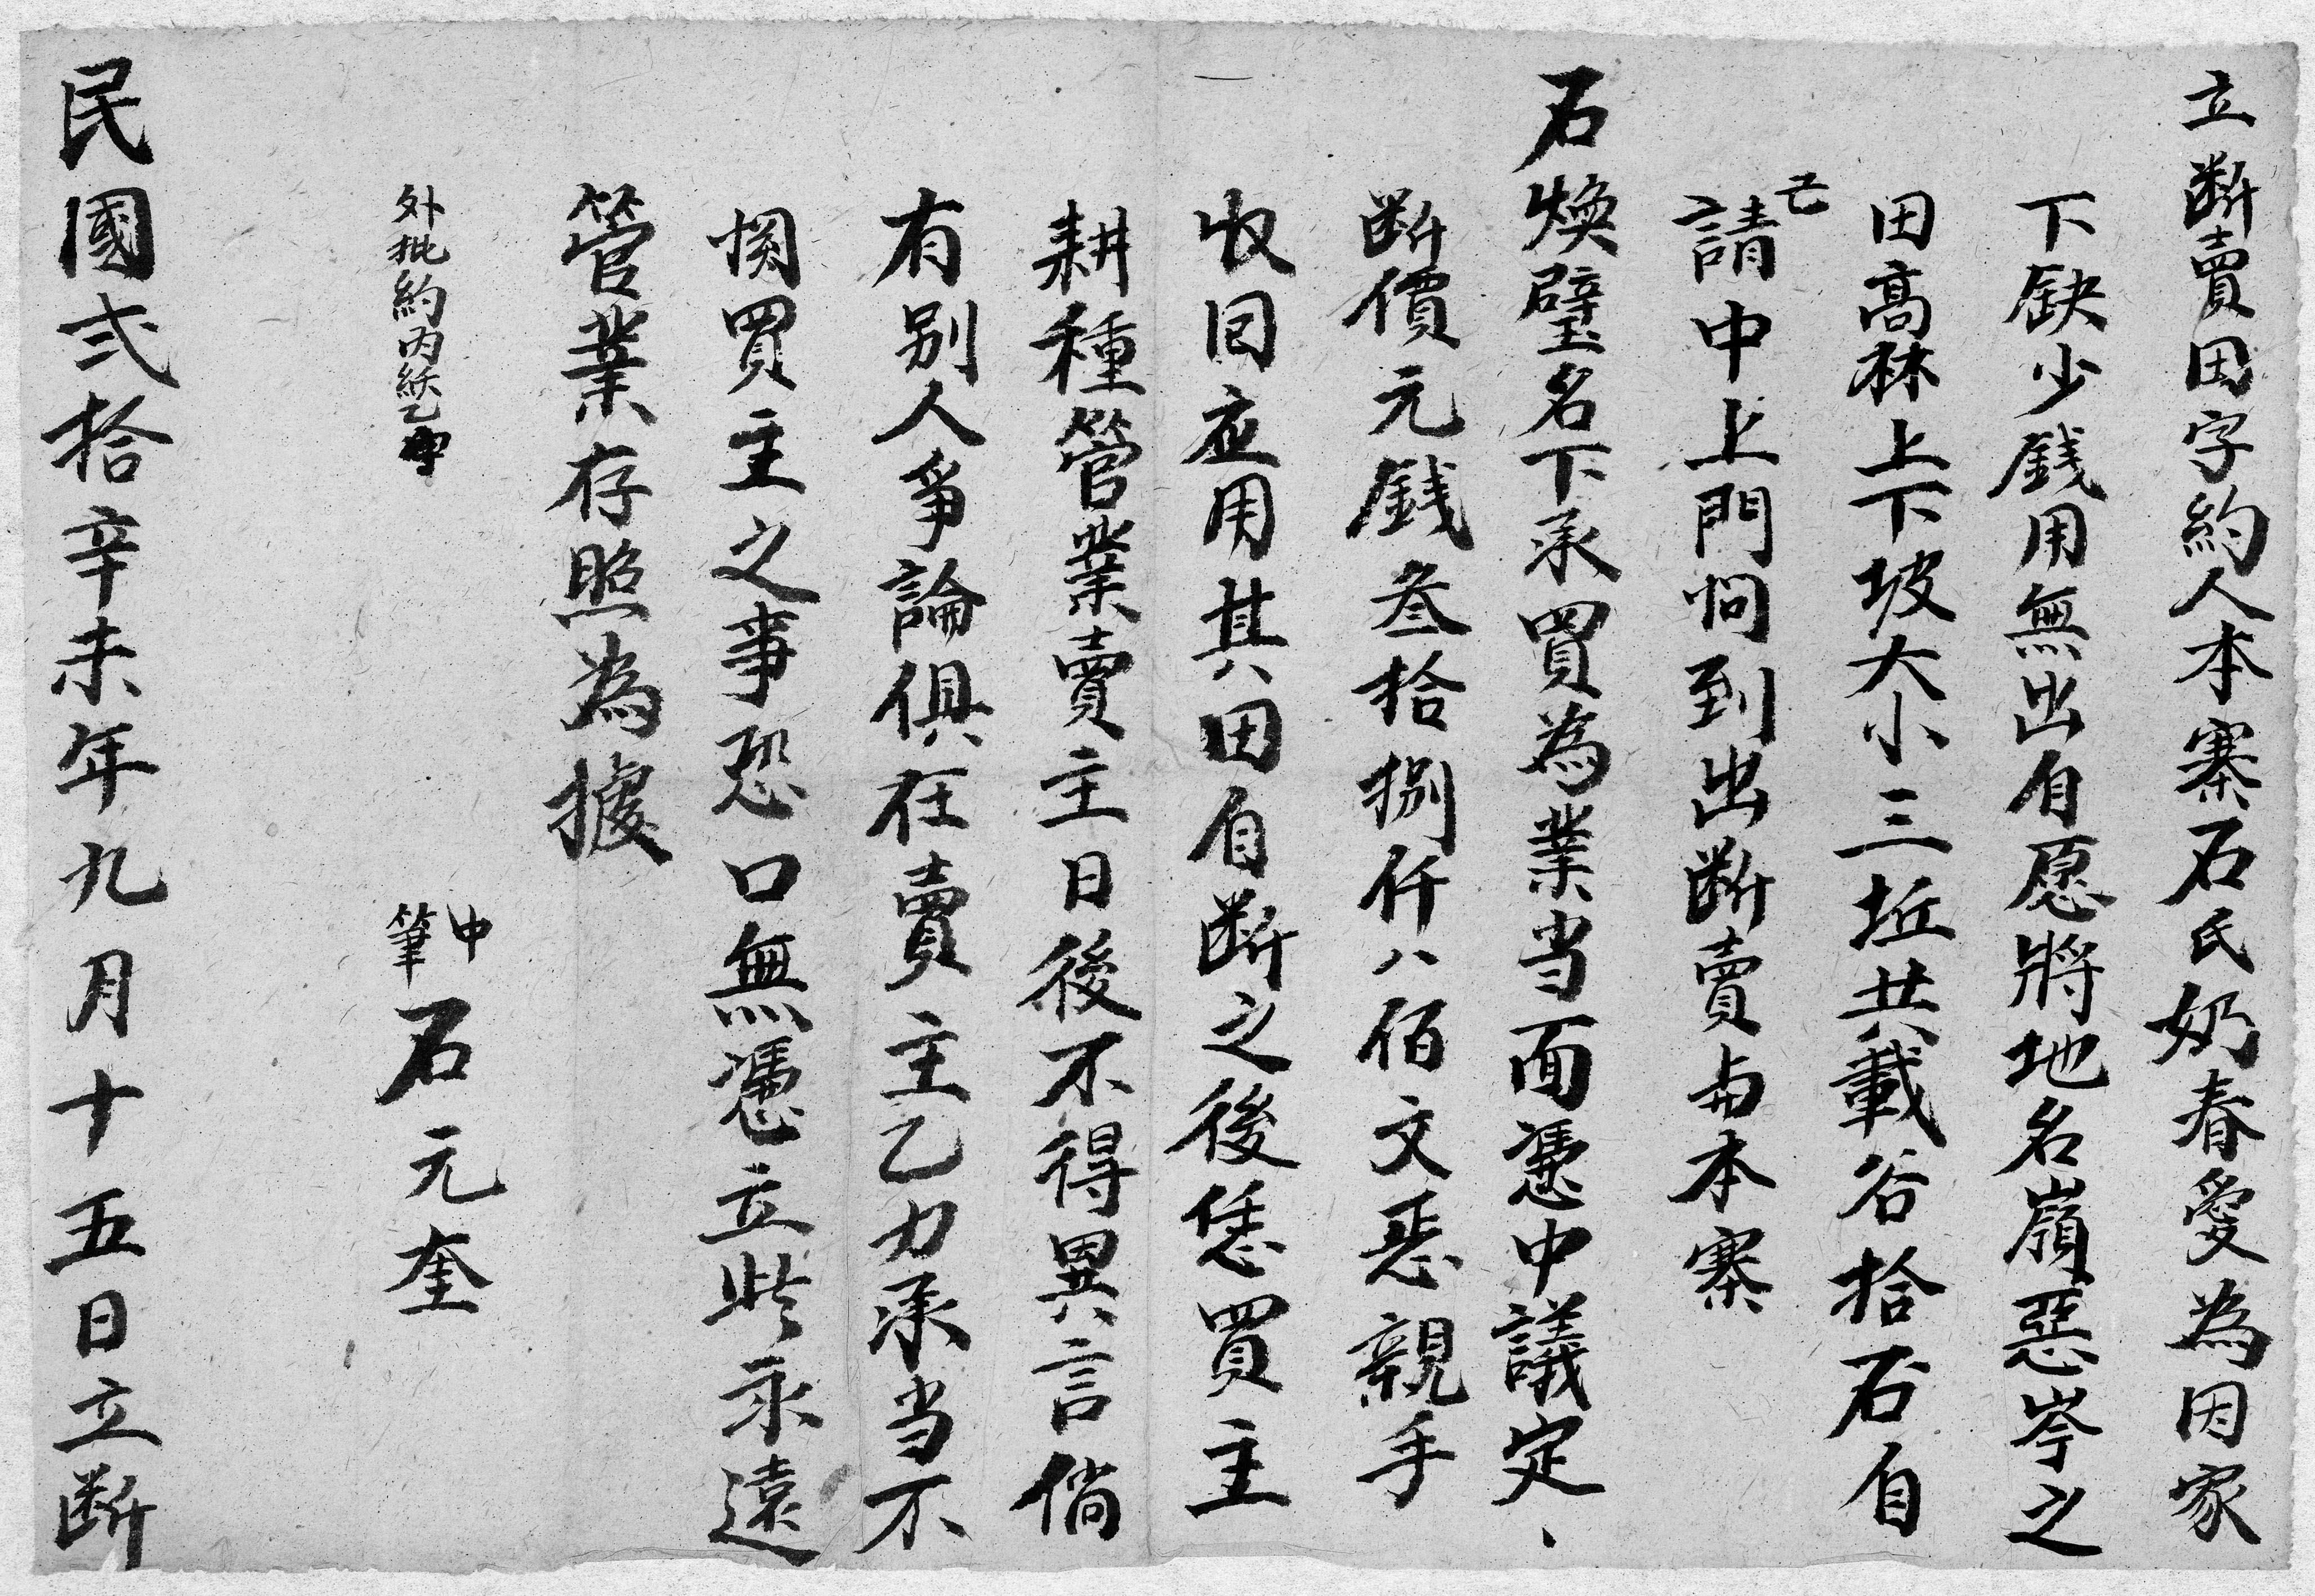 立断賣田字約人本寨石氏奶春愛為因家
下缺少銭用無出自愿將地名嶺惡岑之
田高林上下坡大小三坵共載谷拾石自
己請中上門问到出断賣与本寨
石煥璧名下承買為業当面凴中議定、
断價元銭叁拾捌仟八佰文恶親手
收回应用其田自断之後恁買主
耕種管業賣主日後不得異言倘
有别人爭論俱在賣主乙力承当不
関買主之事恐口無凴立此永遠
管業存照為據
外批約内紙乙
中
筆 石元奎
民國弍拾辛未年九月十五日立断